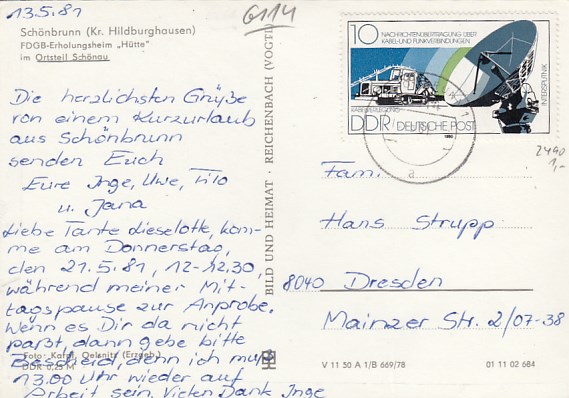 13.5.81
6114
Schönbrunn (Kr. Hildburghausen)
FDGB-Erholungsheim „Hütte"
im Ortsteil Schönau
Die herzlichsten Grüße
von einem Kurzurlaub
aus Schönbrunn
senden Euch
Eure Inge, Uwe, Filo
u. Jana
Liebe Tante Lieselotte, kom-
me am Donnerstag,
den 21.5.81, 12-12.30,
während meiner Mit-
tagspause zur Anprobe.
Wenn es Dir da nicht
paßt, dann gebe bitte
Bescheid, denn ich muß
13.00 Uhr wieder auf
Arbeit sein. Vielen Dank Inge
Foto: Oelsnitz (Erzgeb.)
DDR 0,25 M
BILD UND HEIMAT · REICHENBACH (VOGTL)
10 NACHRICHTENÜBERTRAGUNG ÜBER
KABEL-UND FUNKVERBINDUNGEN
INTERSPUTNIK
DDR DEUTSCHE POST
1980
2490
1,-
Fam.
Hans Strupp
8040 Dresden
Mainzer Str. 2/07-38
V 11 50 A 1/B 669/78
01 11 02 684